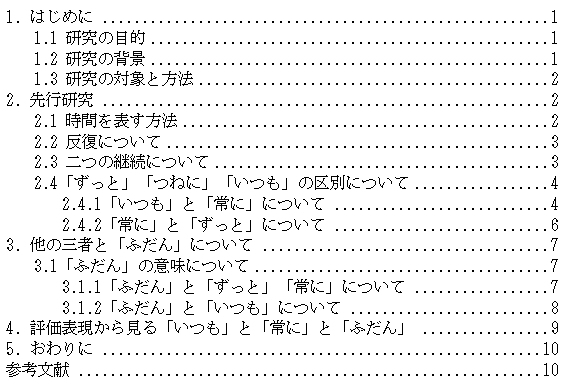 1. はじめに ........................................................1
1.1 研究の目的 ..................................................1
1.2 研究の背景 ..................................................1
1.3 研究の対象と方法 ............................................2
2. 先行研究 ........................................................2
2.1 時間を表す方法 ..............................................2
2.2 反復について ................................................3
2.3 二つの継続について ..........................................3
2.4「ずっと」「つねに」「いつも」の区別について .................4
2.4.1「いつも」と「常に」について ............................4
2.4.2「常に」と「ずっと」について ............................6
3. 他の三者と「ふだん」について ....................................7
3.1「ふだん」の意味について .....................................7
3.1.1「ふだん」と「ずっと」「常に」について ..................7
3.1.2「ふだん」と「いつも」について ..........................8
4. 評価表現から見る「いつも」と「常に」と「ふだん」 ................9
5. おわりに .......................................................10
参考文献 ..........................................................10